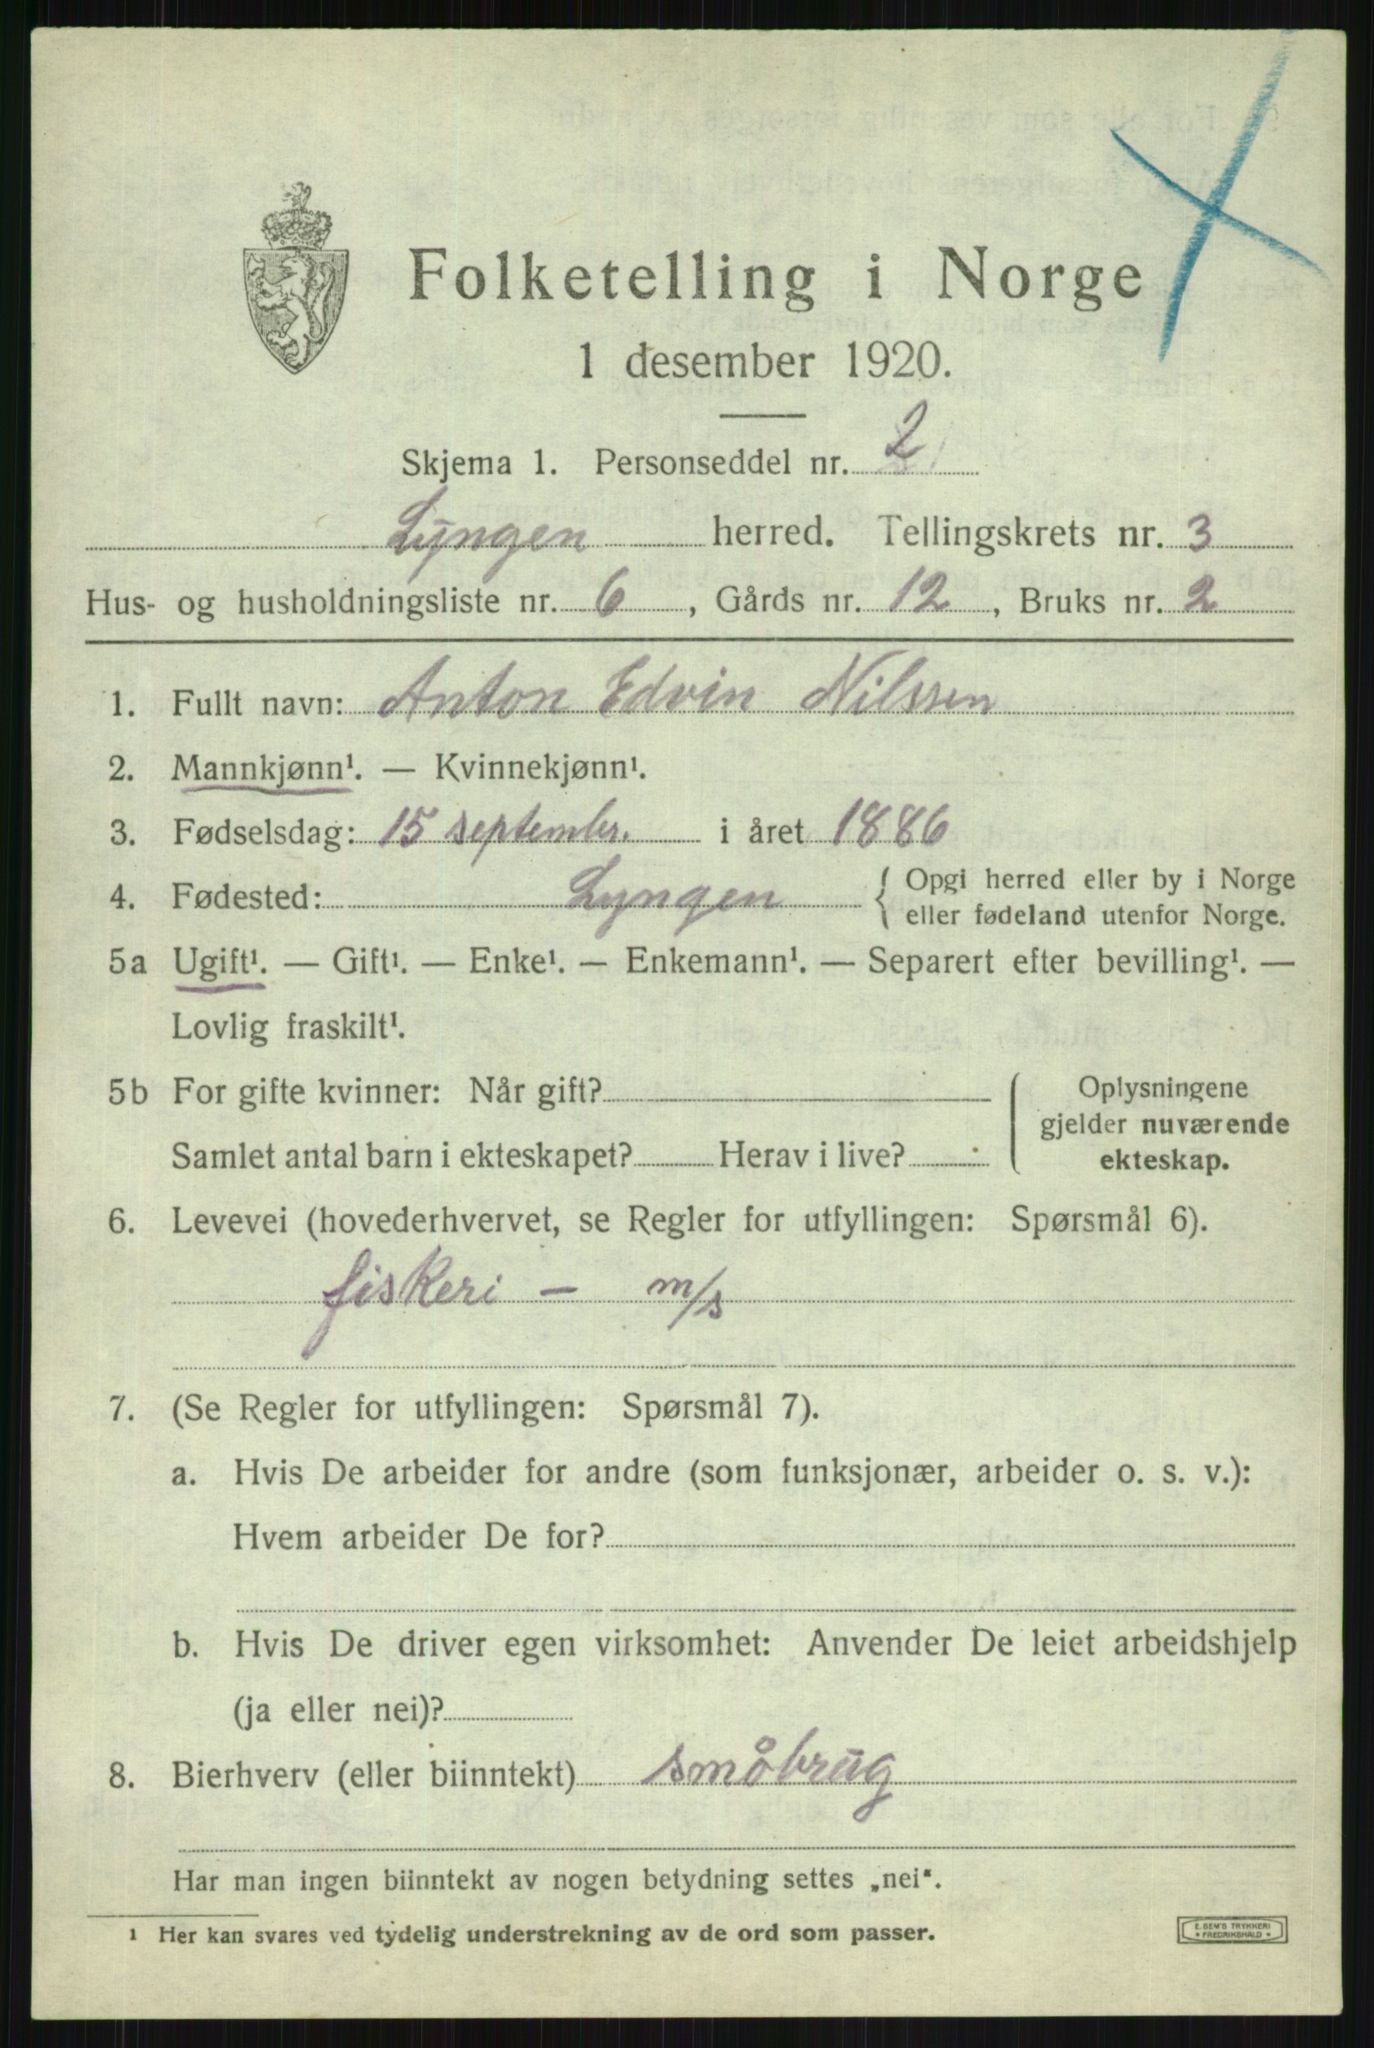 Folketelling i Norge
1 desember 1920.
Skjema 1. Personseddel nr. 2
Lyngen herred. Tellingskrets nr. 3
Hus- og husholdningsliste nr. 6, Gårds nr. 12, Bruks nr. 2
1. Fullt navn: Anton Edvin Nilssen
2. Mannkjønn¹. — Kvinnekjønn¹.
3. Fødselsdag: 15 septembr. i året 1886
4. Fødested: Lyngen { Opgi herred eller by i Norge
eller fødeland utenfor Norge.
5a Ugift¹. — Gift¹. — Enke¹. — Enkemann¹. — Separert efter bevilling¹. —
Lovlig fraskilt¹.
5b For gifte kvinner: Når gift?
Samlet antal barn i ekteskapet? Herav i live?
Oplysningene
gjelder nuværende
ekteskap.
6. Levevei (hovederhvervet, se Regler for utfyllingen: Spørsmål 6).
fiskeri – m/s
7. (Se Regler for utfyllingen: Spørsmål 7).
a. Hvis De arbeider for andre (som funksjonær, arbeider o. s. v.):
Hvem arbeider De for?
b. Hvis De driver egen virksomhet: Anvender De leiet arbeidshjelp
(ja eller nei)?
8. Bierhverv (eller biinntekt) småbrug
Har man ingen biinntekt av nogen betydning settes „nei“.
¹ Her kan svares ved tydelig understrekning av de ord som passer.
E. SEM'S TRYKKERI
* FREDRIKSHALD *